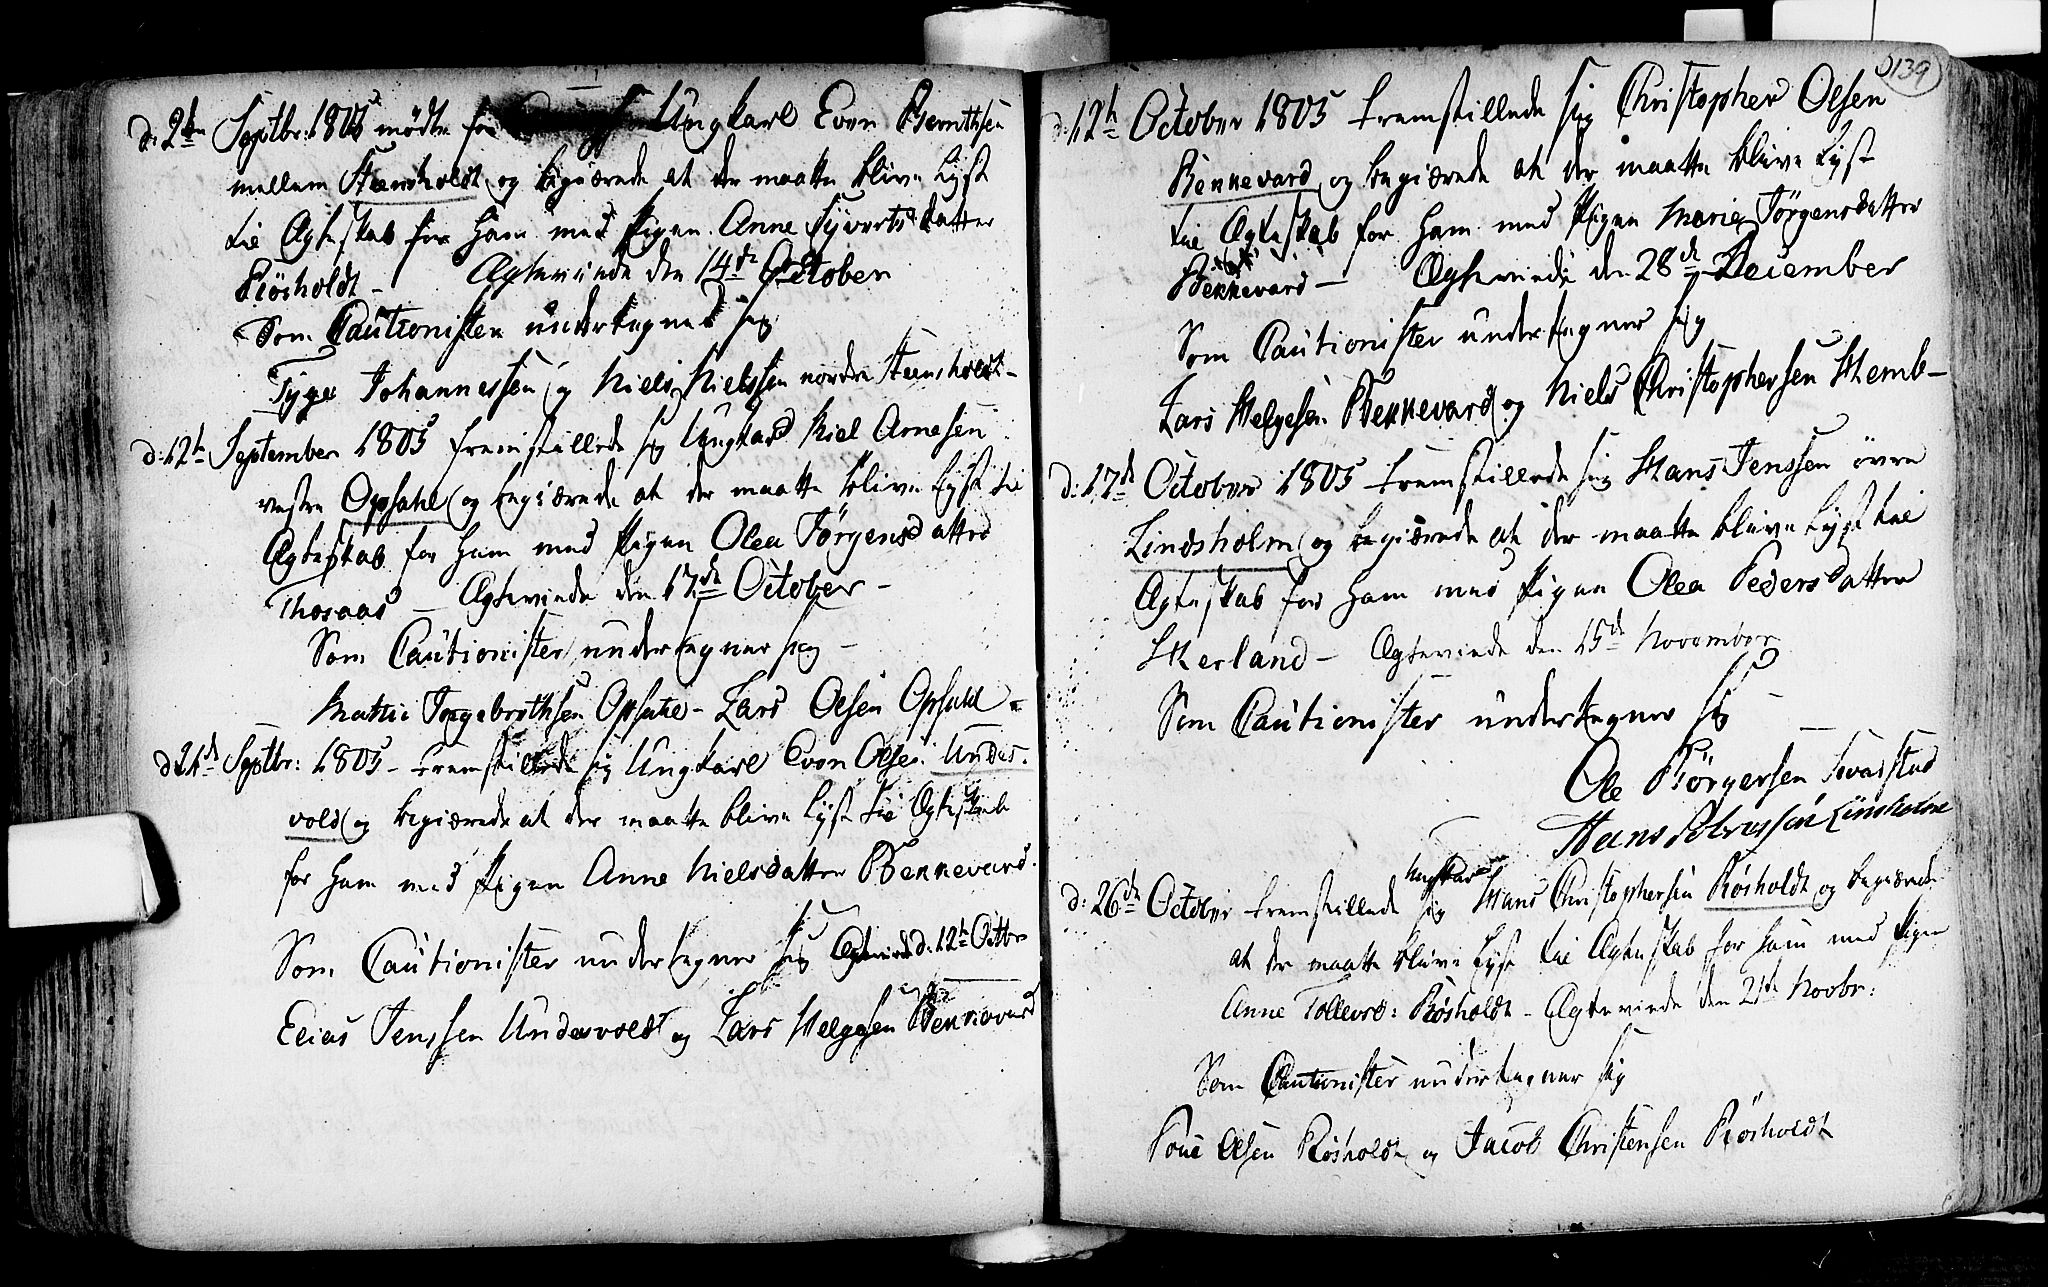 d: 2den Septbr: 1805 mödte for Ungkarl Even Bernthsen
mellem Steensholdt og begiærede at der maatte blive lyst
til Ægteskab for ham med Pigen Anne Syvertsdatter
Rösholdt - Ægteviede den 14de October
Som Cautionister undertegner sig
Tyge Johannessen og Niels Nielssen nordre Steensholdt -
d: 12te September 1805 fremstillede sig Ungkarl Kiel Arnesen
vestre Opsahl og begiærede at der maatte blive lyst til
Ægteskab for ham med Pigen Olea Jörgensdatter
Thosaas - Ægteviede den 17de October -
Som Cautionister undertegner sig -
Mathis Ingebrethsen Opsahl - Lars Olsen Opsahl -
d 21de Septbr: 1805 - fremstillede sig Ungkarl Even Olsen Undes-
vold og begiærede at der maatte blive lyst til Ægteskab
for ham med Pigen Anne Nielsdatter Bennevard.
Som Cautionister undertegner sig Ægteviede d: 12te Octbr
Elias Jenssen Undesvoldt og Lars Helgesen Bennevard
139
d: 12te October 1805 fremstillede sig Christopher Olsen
Bennevard og begiærede at der maatte blive lyst
til Ægteskab for ham med Pigen Marie Jörgensdatter
Bennevard - Ægteviede den 28de December
Som Cautionister undertegner sig
Lars Helgesen Bennevard og Niels Christophersen Hemb -
d: 17de October 1805 fremstillede sig Hans Jenssen övre
Lindsholm og begiærede at der maatte blive lyst til
Ægteskab for ham med Pigen Olea Pedersdatter
Herland - Ægteviede den 15de November
Som Cautionister undertegner sig -
Ole Börgersen
Hans Linsholm
Ungkarl
d: 26de October fremstillede sig Hans Christophersen Rösholdt og begiærede
at der maatte blive lyst til Ægteskab for ham med Pigen
Anne Tollevsd: Rösholdt - Ægteviede den 21de Novbr:
Som Cautionister undertegner sig
Poul Olsen Rösholdt og Jacob Christensen Rösholdt